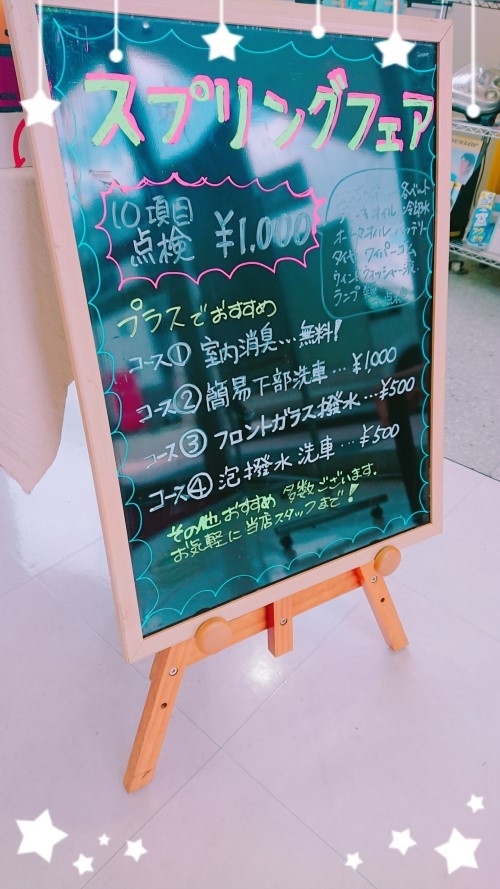 スプリングフェア
10項目
点検 ¥1,000
各ベルト
オイル 冷却水
オートマオイル バッテリー
タイヤ ワイパーゴム
ウィンドウォッシャー液
ランプ 点検
プラスでおすすめ
コース① 室内消臭…無料!
コース② 簡易下部洗車…¥1,000
コース③ フロントガラス撥水…¥500
コース④ 泡撥水洗車…¥500
その他おすすめ多数ございます。
お気軽に当店スタッフまで!